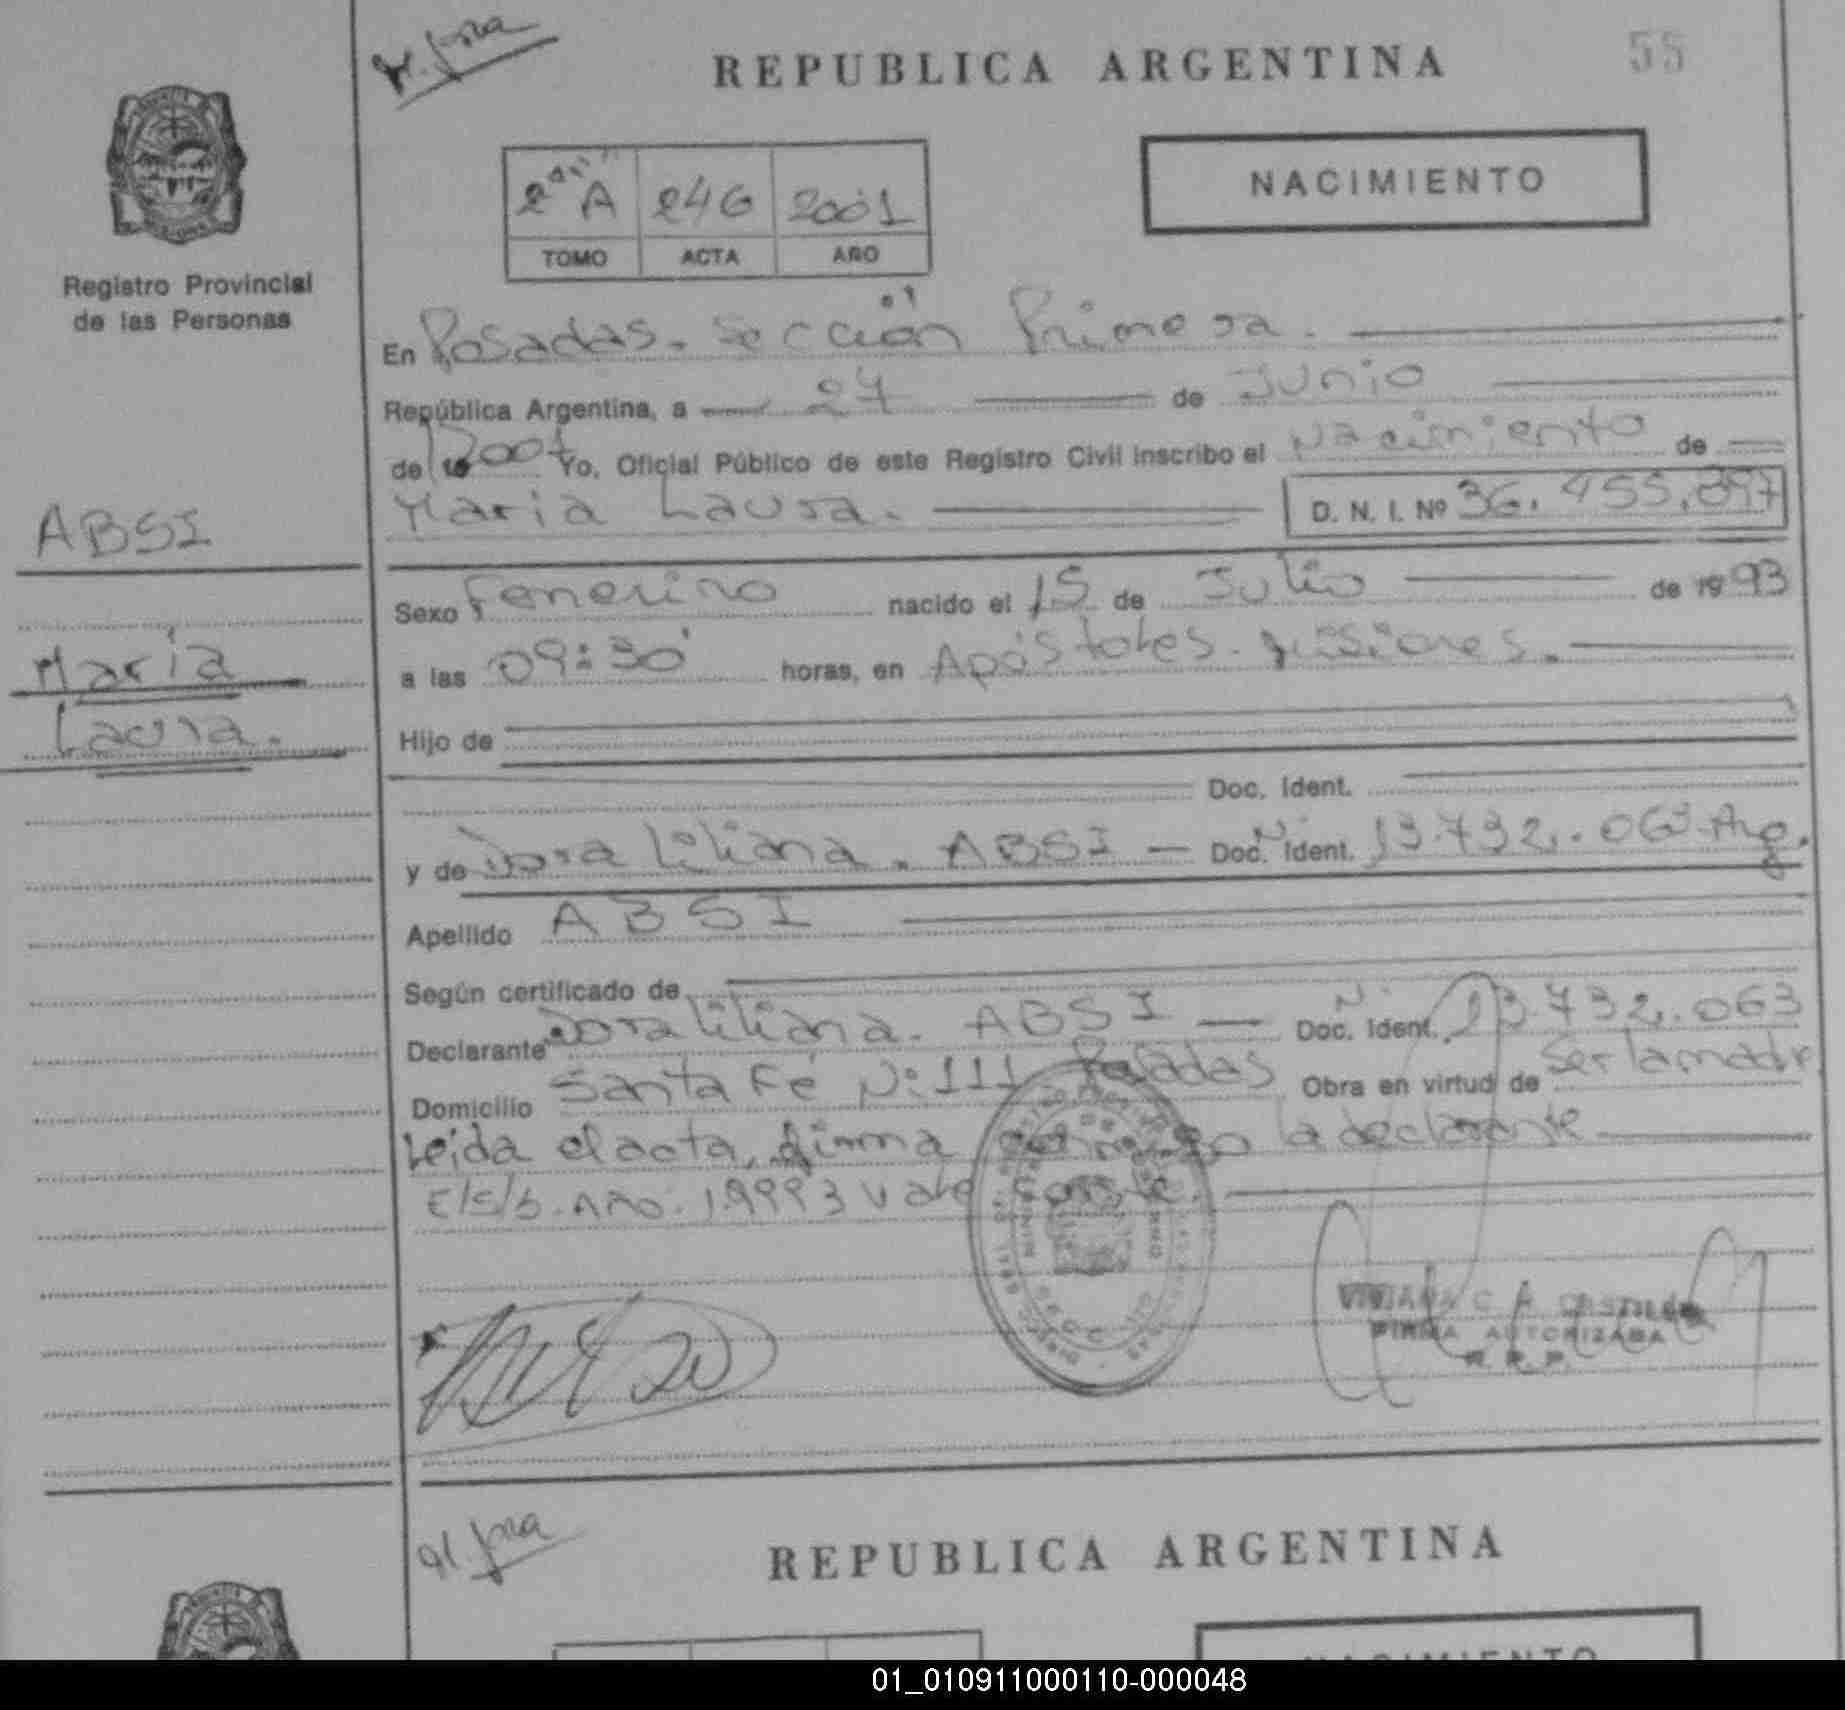 55
REPUBLICA ARGENTINA
NACIMIENTO
2ª A 246 2001
TOMO ACTA AÑO
Registro Provincial
de las Personas
En Posadas. Sección Primera.
República Argentina, a 27 de Junio
de 2001 Yo, Oficial Público de este Registro Civil inscribo el Nacimiento de
Maria Laura. D. N. I. Nº 36.455.897
ABSI
Maria
Laura.
Sexo Femenino nacido el 15 de Julio de 1993
a las 09:30 horas, en Apóstoles. Misiones.
Hijo de
Doc. Ident.
y de Dora Liliana. ABSI — Doc. Ident. N. 13.732.063 Arg.
Apellido ABSI
Según certificado de
Declarante Dora Liliana. ABSI — Doc. Ident. N. 13.732.063
Domicilio Santa Fé N: 111 Posadas Obra en virtud de Ser la madre
Leida el acta, firma conmigo la declarante
E/S/b. Año. 19993 Vale
VIVIANA C. A. CASTILLO
FIRMA AUTORIZADA
R. P. P.
REPUBLICA ARGENTINA
NACIMIENTO
01_010911000110-000048